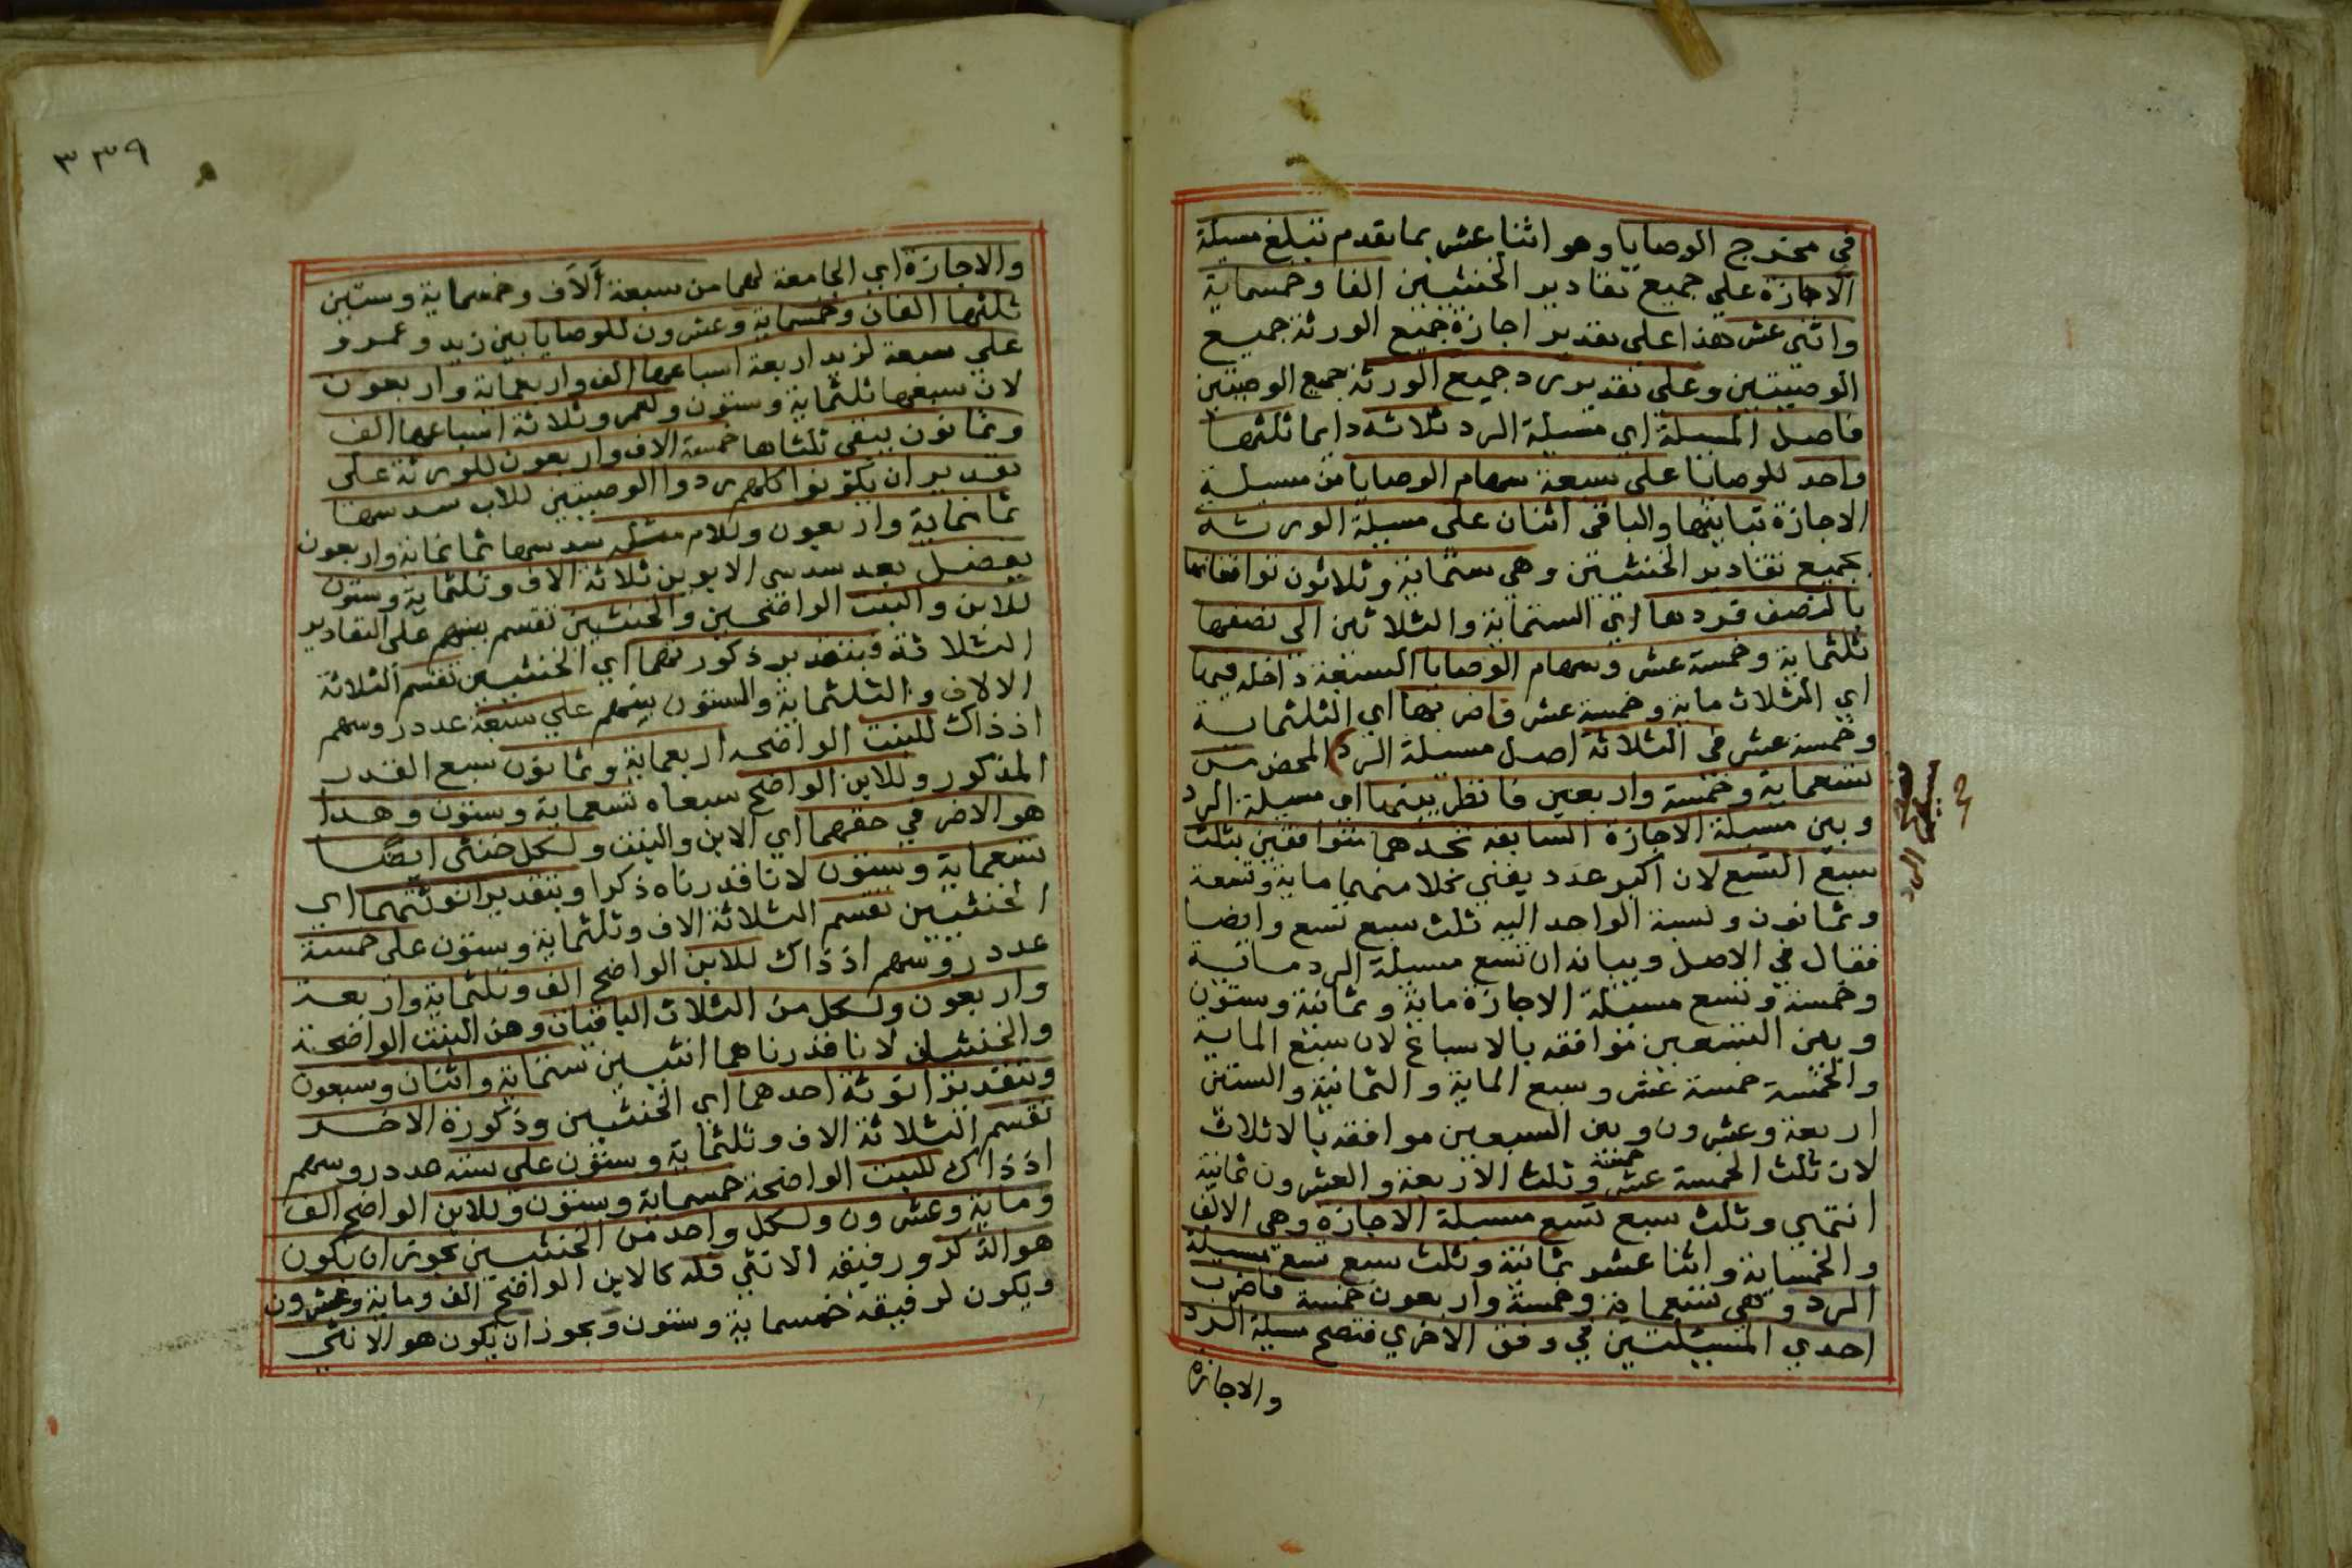 في مخرج الوصايا وهو اثنا عشر بما تقدم تبلغ مسيلة
الاجازة علي جميع تقادير الخنثيين الفا وخمسماية
واثني عشر هذا على تقدير اجازة جميع الورثة جميع
الوصيتين وعلى تقدير رد جميع الورثة جميع الوصيتين
فاصل المسيلة اي مسيلة الرد ثلاثة دايما ثلثها
واحد للوصايا على سبعة سهام الوصايا من مسيلة
الاجازة تباينها والباقي اثنان على مسيلة الورثة
بجميع تقادير الخنثيين وهي ستماية وثلاثون توافقانها
بالنصف فردها اي الستماية والثلاثين الى نصفها
ثلثماية وخمسة عشر وسهام الوصايا السبعة داخله فيها
اي الثلاث ماية وخمسة عشر فاضربها اي الثلثماية
وخمسة عشر في الثلاثة اصل مسيلة الرد المحض من
تسعماية وخمسة واربعين فانظر بينها اي مسيلة الرد
وبين مسيلة الاجازة السابقه تجدهما متوافقين بثلث
سبع التسع لان اكبر عدد يفني كلا منهما ماية وتسعة
وثمانون ونسبة الواحد اليه ثلث سبع تسع وايضا
فقال في الاصل وبيانه ان تسع مسيلة الرد ماية
وخمسة وتسع مسيلة الاجازة ماية وثمانية وستون
وبين التسعين موافقه بالاسباع لان سبع الماية
والخمسة خمسة عشر وسبع الماية والثمانية والستين
اربعة وعشرون وبين السبعين موافقه بالاثلاث
لان ثلث الخمسة عشر خمسة وثلث الاربعة والعشرون ثمانية
انتهي وثلث سبع تسع مسيلة الاجازة وهي الالف
والخمسماية واثنا عشر ثمانية وثلث سبع تسع مسيلة
الرد وهي تسعماية وخمسة واربعون خمسة فاضرب
احدي المسيلتين في وفق الاخري فتصح مسيلة الرد
والاجازة
٣٣٩
والاجازة اي الجامعة لهما من سبعة آلاف وخمسماية وستين
ثلثها الفان وخمسماية وعشرون للوصايا بين زيد وعمرو
علي سبعة لزيد اربعة اسباعها الف واربعماية واربعون
لان سبعها ثلثماية وستون ولعمرو ثلاثة اسباعها الف
وثمانون يبقى ثلثاها خمسة الاف واربعون للورثة على
تقدير ان يكونوا كلهم ردوا الوصيتين للاب سدسها
ثمانماية واربعون وللام مثله سدسها ثمانماية واربعون
يفضل بعد سدسي الابوين ثلاثة الاف وثلثماية وستون
للابن والبنت الواضحين والخنثيين تقسم بينهم على التقادير
الثلاثة فبتقدير ذكورتهما اي الخنثيين تقسم الثلاثة
الالاف والثلثماية والستون بينهم علي سبعة عدد روسهم
اذ ذاك للبنت الواضحه اربعماية وثمانون سبع القدر
المذكور وللابن الواضح سبعاه تسعماية وستون وهذا
هو الاضر في حقهما اي الابن والبنت ولكل خنثى ايضا
تسعماية وستون لانا قدرناه ذكرا وبتقدير انوثتهما اي
الخنثيين تقسم الثلاثة الاف وثلثماية وستون على خمسة
عدد روسهم اذ ذاك للابن الواضح الف وثلثماية واربعة
واربعون ولكل من الثلاث الباقيات وهن البنت الواضحة
والخنثيان لانا قدرناهما انثيين ستماية واثنان وسبعون
وبتقدير انوثة احدهما اي الخنثيين وذكورة الاخر
تقسم الثلاثة الاف وثلثماية وستون على ستة عدد روسهم
اذ ذاك للبنت الواضحة خمسماية وستون وللابن الواضح الف
وماية وعشرون ولكل واحد من الخنثيين يجوز ان يكون
هو الذكر ورفيقه الانثي فله كالابن الواضح الف وماية وعشرون
ويكون لرفيقه خمسماية وستون ويجوز ان يكون هو الانثي